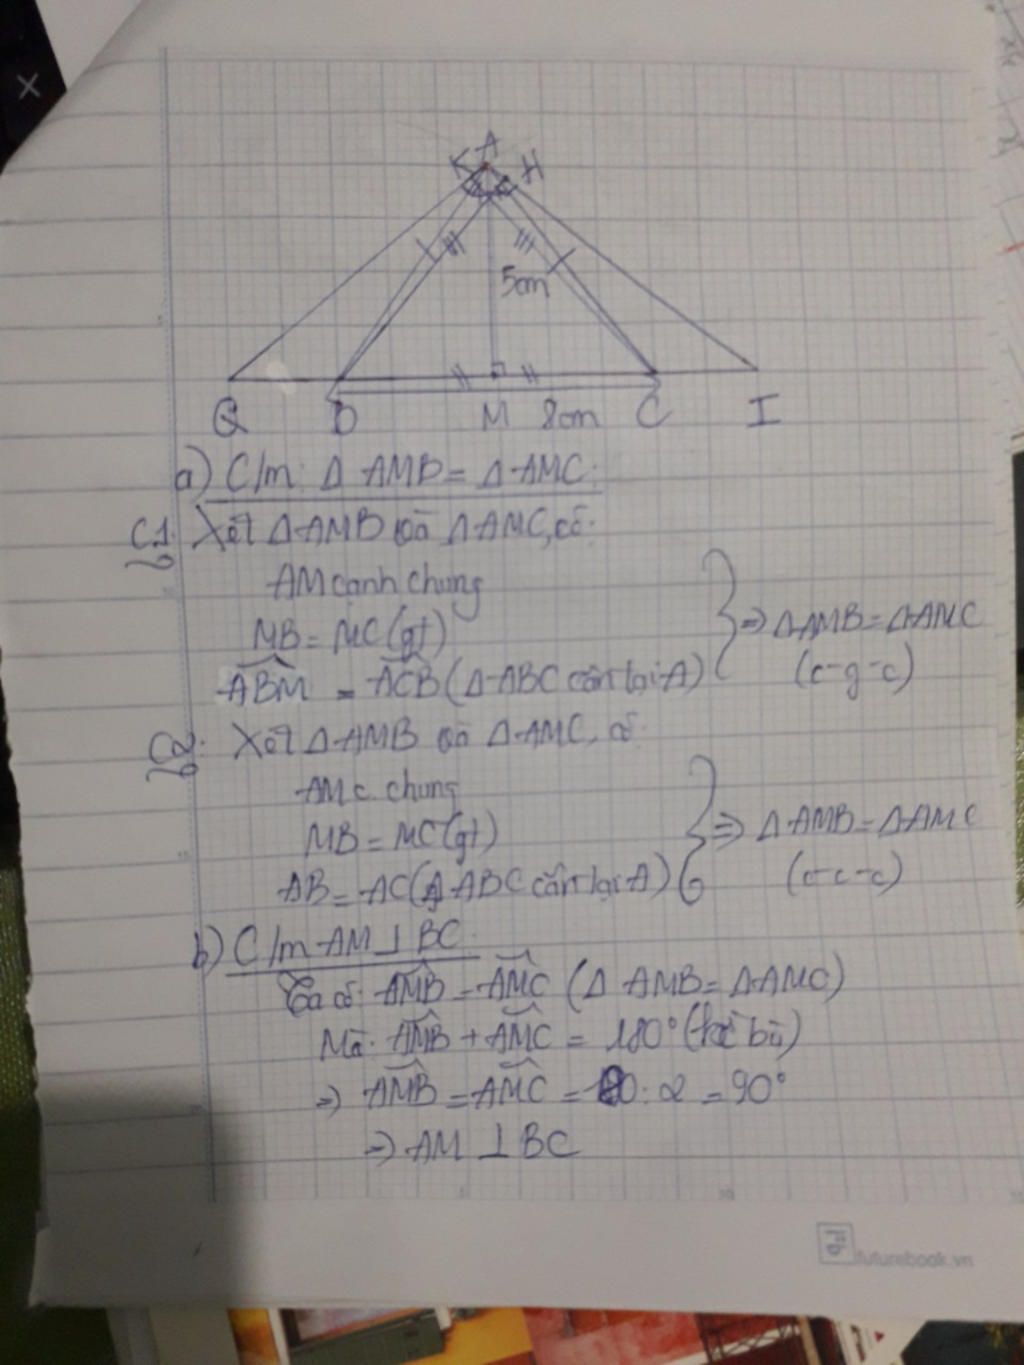 A
K
H
5cm
Q
B
M
8cm
C
I
a) C/m: Δ AMB = Δ AMC.
C1. Xét Δ AMB và Δ AMC, có:
AM cạnh chung
MB = MC (gt)
ABM = ACB (Δ ABC cân tại A)
=> Δ AMB = Δ AMC
(c-g-c)
C2. Xét Δ AMB và Δ AMC, có:
AM c. chung
MB = MC (gt)
AB = AC (Δ ABC cân tại A)
=> Δ AMB = Δ AMC
(c-c-c)
b) C/m AM ⊥ BC.
Ta có: AMB = AMC (Δ AMB = Δ AMC)
Mà: AMB + AMC = 180° (kề bù)
=> AMB = AMC = 180 : 2 = 90°
=> AM ⊥ BC
futurebook.vn